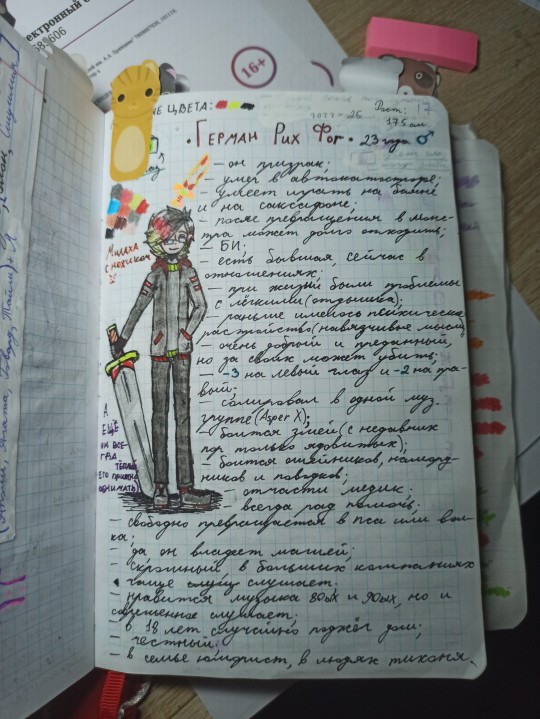 ектронный с
16+
ЫЕ ЦВЕТА:
17
Рост:
175 см
• ГЕРМАН РИХ ФОГ • 23 года ♂
— он призрак;
— умер в автокатастрофе;
— умеет играть на баяне
и на саксафоне;
— после превращения в монс-
тра может долго отходить;
— БИ;
— есть бывшая, сейчас в
отношениях;
— при жизни были проблемы
с лёгкими (отдышка);
— раньше имелось психическое
расстройство (навязчивые мысли)
— очень добрый и преданный,
но за своих может убить;
— -3 на левый глаз и -2 на пра-
вый;
— солировал в одной муз.
группе (Asper X);
— боится змей (с недавних
пор только ядовитых);
— боится ошейников, наморд-
ников и поводков;
— отчасти медик;
— всегда рад помочь;
— свободно превращается в пса или вол-
ка;
— да он владеет магией;
— скромный, в больших компаниях
чаще слушает.
— нравится музыка 80ых и 90ых, но и
современное слушает;
— в 18 лет случайно поджёг дом;
— честный;
— в семье юморист, в людях тихоня.
МИЛАХА
С НОЖИКОМ
А
ЕЩЁ
ОН ВСЕ-
ГДА
ТЁПЛЫЙ
ЕГО ПРИЯТНО
ОБНИМАТЬ)